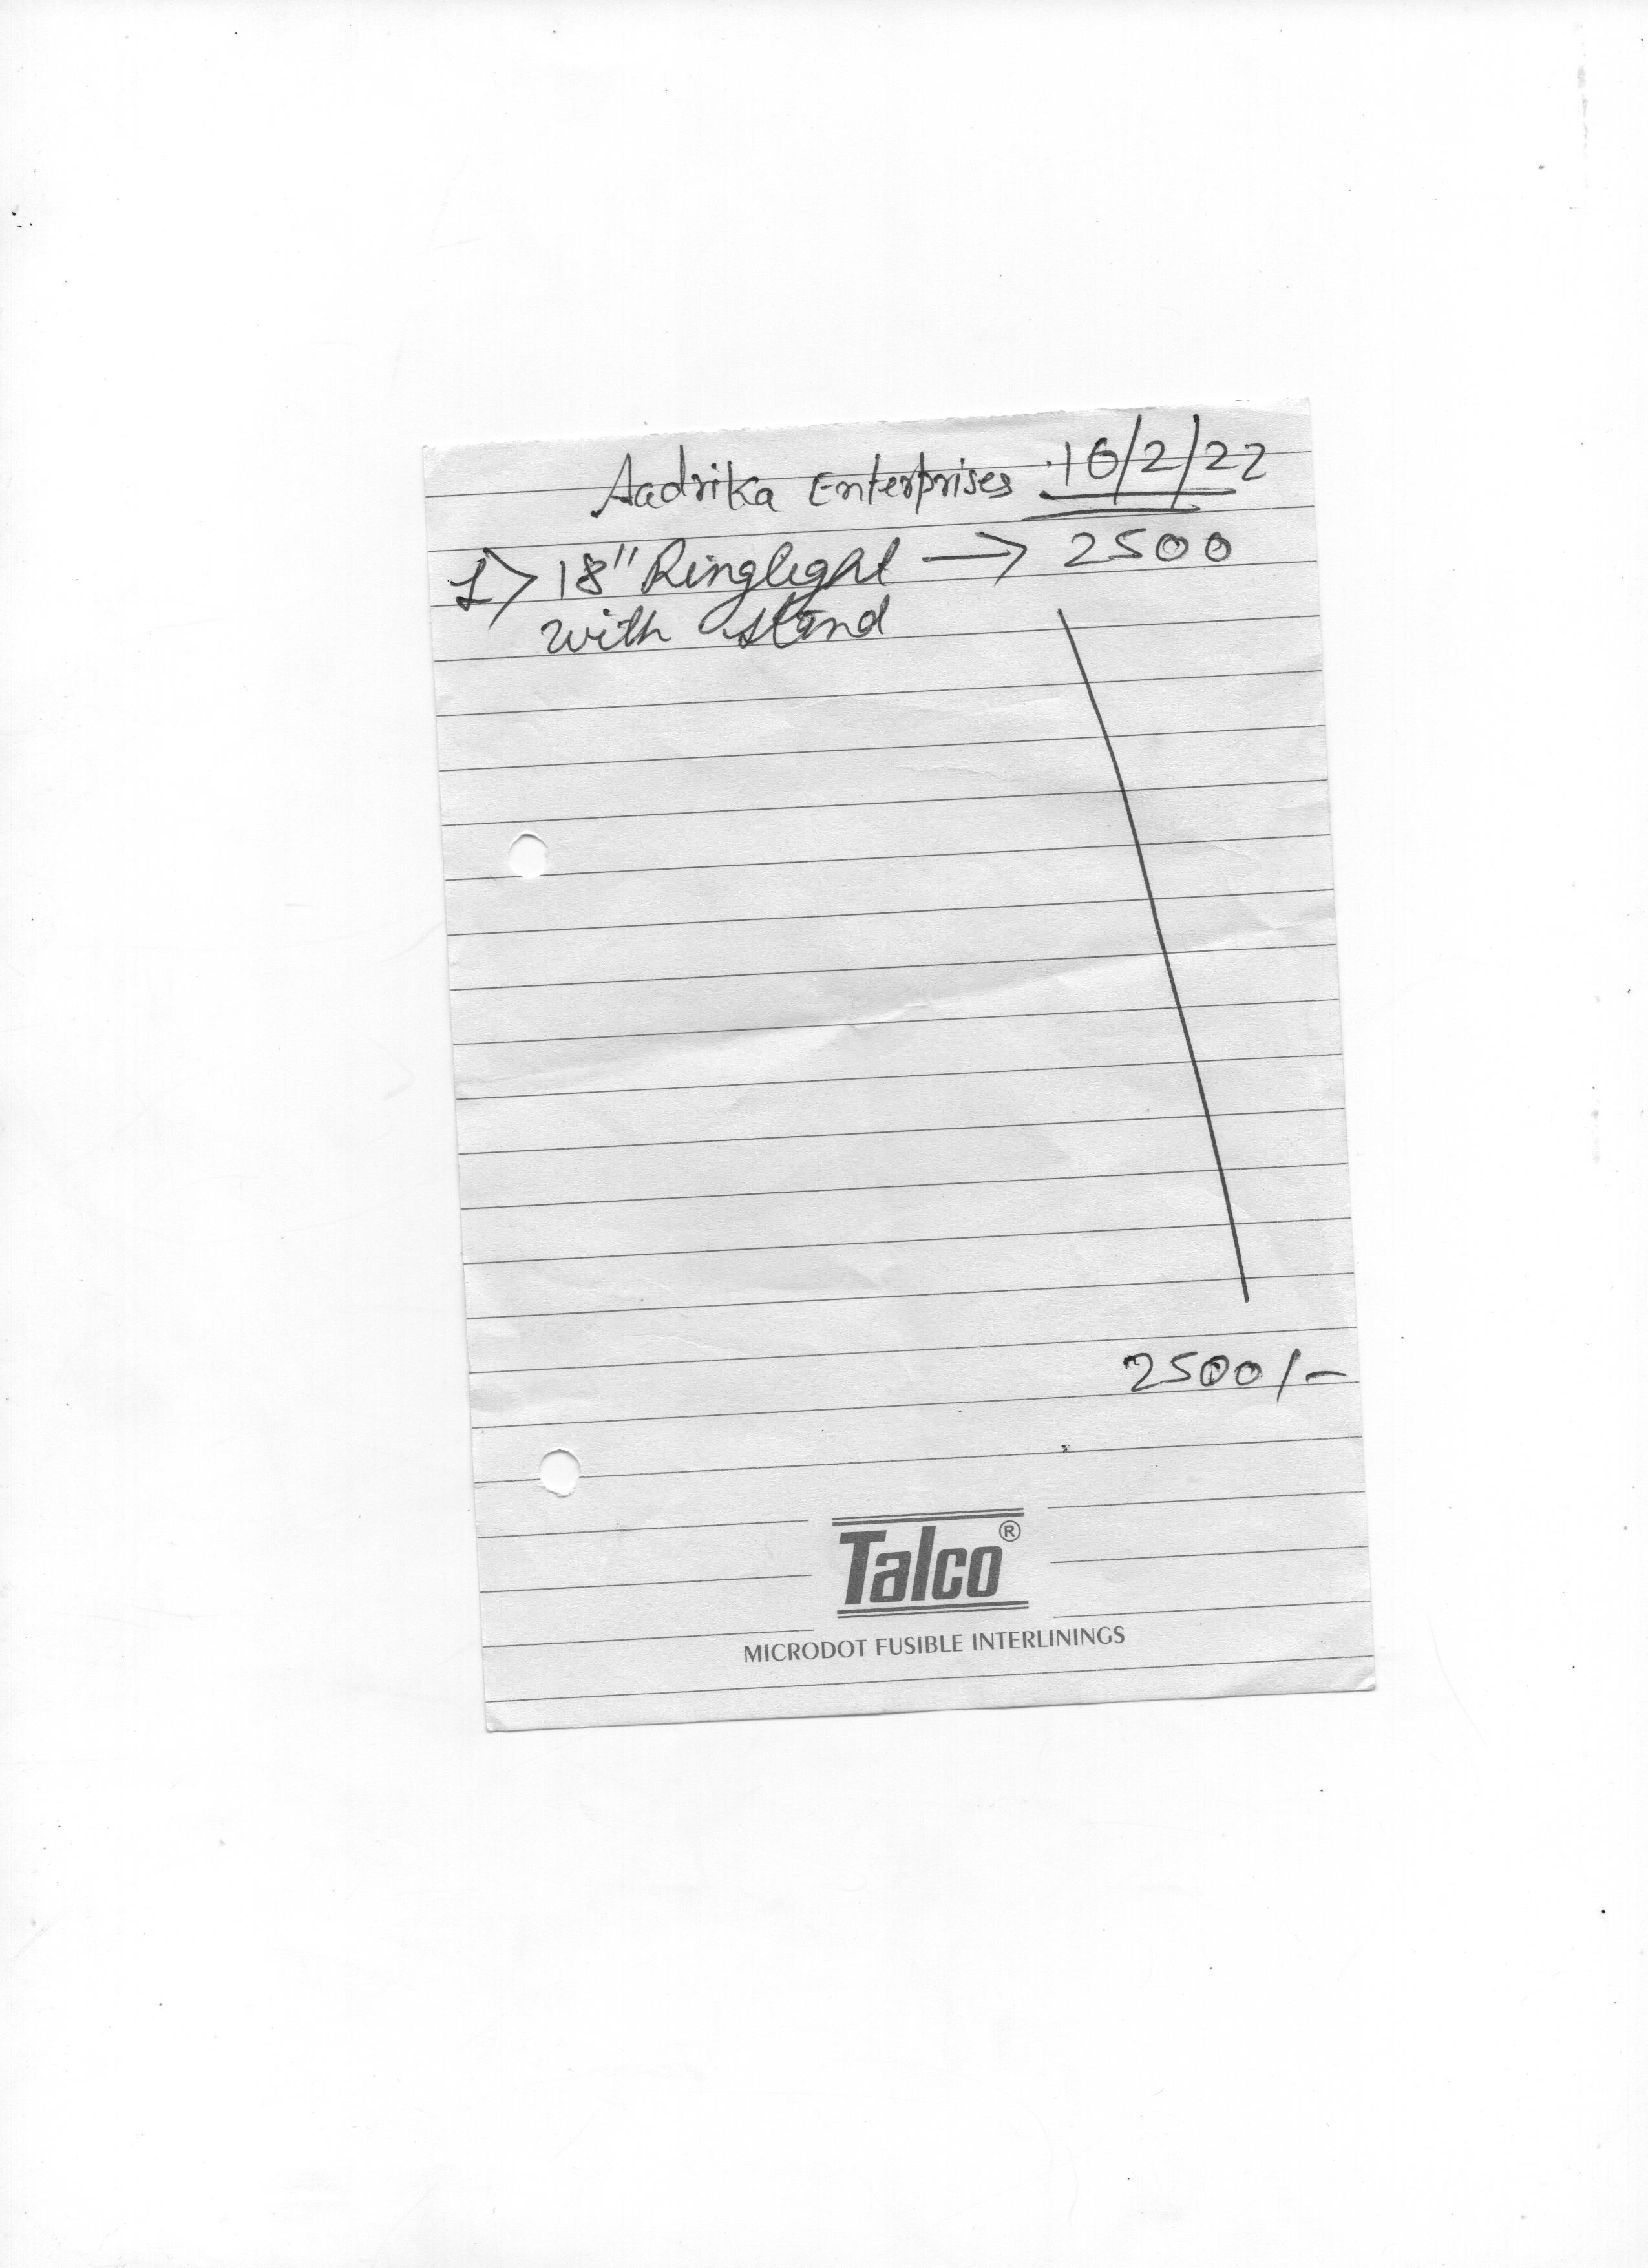 Aadrika Enterprises 16/2/22
1> 18" Ringlight → 2500
with stand
2500/-
Talco®
MICRODOT FUSIBLE INTERLININGS